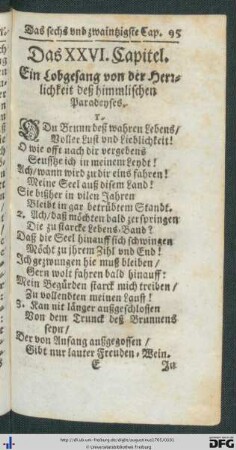 Das sechs und zwaintzigste Cap. 95
Das XXVI. Capitel.
Ein Lobgesang von der Herr-
lichkeit deß himmlischen
Paradeyses.
1.
O Du Brunn deß wahren Lebens/
Voller Lust und Lieblichkeit!
O wie offt nach dir vergebens
Seuffze ich in meinem Leydt!
Ach/wann wird zu dir eins fahren!
Meine Seel auß disem Land!
Sie bißher in vilen Jahren
Bleibt in gar betrübtem Standt.
2. Ach/daß möchten bald zerspringen
Die zu starcke Lebens-Band?
Daß die Seel hinauff sich schwingen
Möcht zu ihrem Zihl und End!
Ich gezwungen hie muß bleiben/
Gern wolt fahren bald hinauff:
Mein Begürden starck mich treiben/
Zu vollendten meinen Lauff!
3. Kan nit länger außgeschlossen
Von dem Trunck deß Brunnens
seyn/
Der von Anfang außgegossen/
Gibt nur lauter Freuden-Wein.
E
In
© Universitätsbibliothek Freiburg
DFG